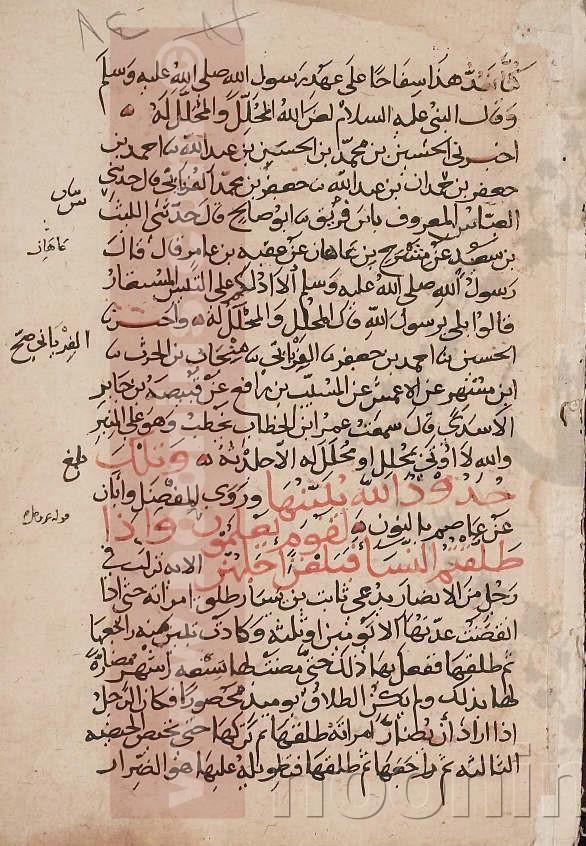 كنا نعد هذا سفاحا على عهد رسول الله صلى الله عليه وسلم
وقال النبي عليه السلام لعن الله المحلل والمحلل له
اخبرني الحسين بن محمد بن الحسين بن عبد الله احمد بن
جعفر بن حمدان بن عبد الله جعفر بن محمد الفريابي قال حدثني
العباس المعروف بابن فريق ابو صالح قال حدثني الليث
بن سعد عن مشرح بن عاهان عن عقبه بن عامر قال قال
رسول الله صلى الله عليه وسلم الا ادلكم على التيس المستعار
قالوا بلى يرسول الله قال المحلل والمحلل له واخبرني
الحسين احمد بن جعفر الفريابي منجاب بن الحرث
ابن مسهر عن الاعمش عن المسيب بن رافع عن قبيصه بن جابر
الاسدي قال سمعت عمر ابن الخطاب يخطب وهو على المنبر
والله لا اوتي بمحلل او محلل له الا رجمته وتلك
حدود الله يبينها وروى المفضل وابان
عن عاصم بالنون لقوم يعلمون واذا
طلقتم النسا فبلغن اجلهن الايه نزلت في
رجل من الانصار يدعى ثابت بن يسار طلق امراته حتى اذا
انقضت عدتها الا يومين او ثلثه وكادت تبين منه راجعها
ثم طلقها ففعل بها ذلك حتى مضت لها تسعه اشهر مضارة
لها بذلك ولم يكن الطلاق يوميذ محصورا وكان الرجل
اذا اراد ان يضار امراته طلقها ثم تركها حتى تحيض الحيضه
الثالثه ثم راجعها ثم طلقها فتطويله عليها هو الضرار
عاهان
الفريابي صح
بلغ
noorlir